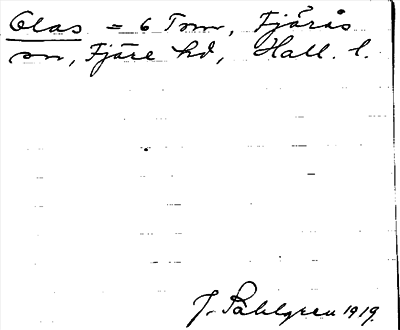 Olas = 6 Tom, Fjärås
sn, Fjäre hd, Hall. l.
J. Sahlgren 1919.